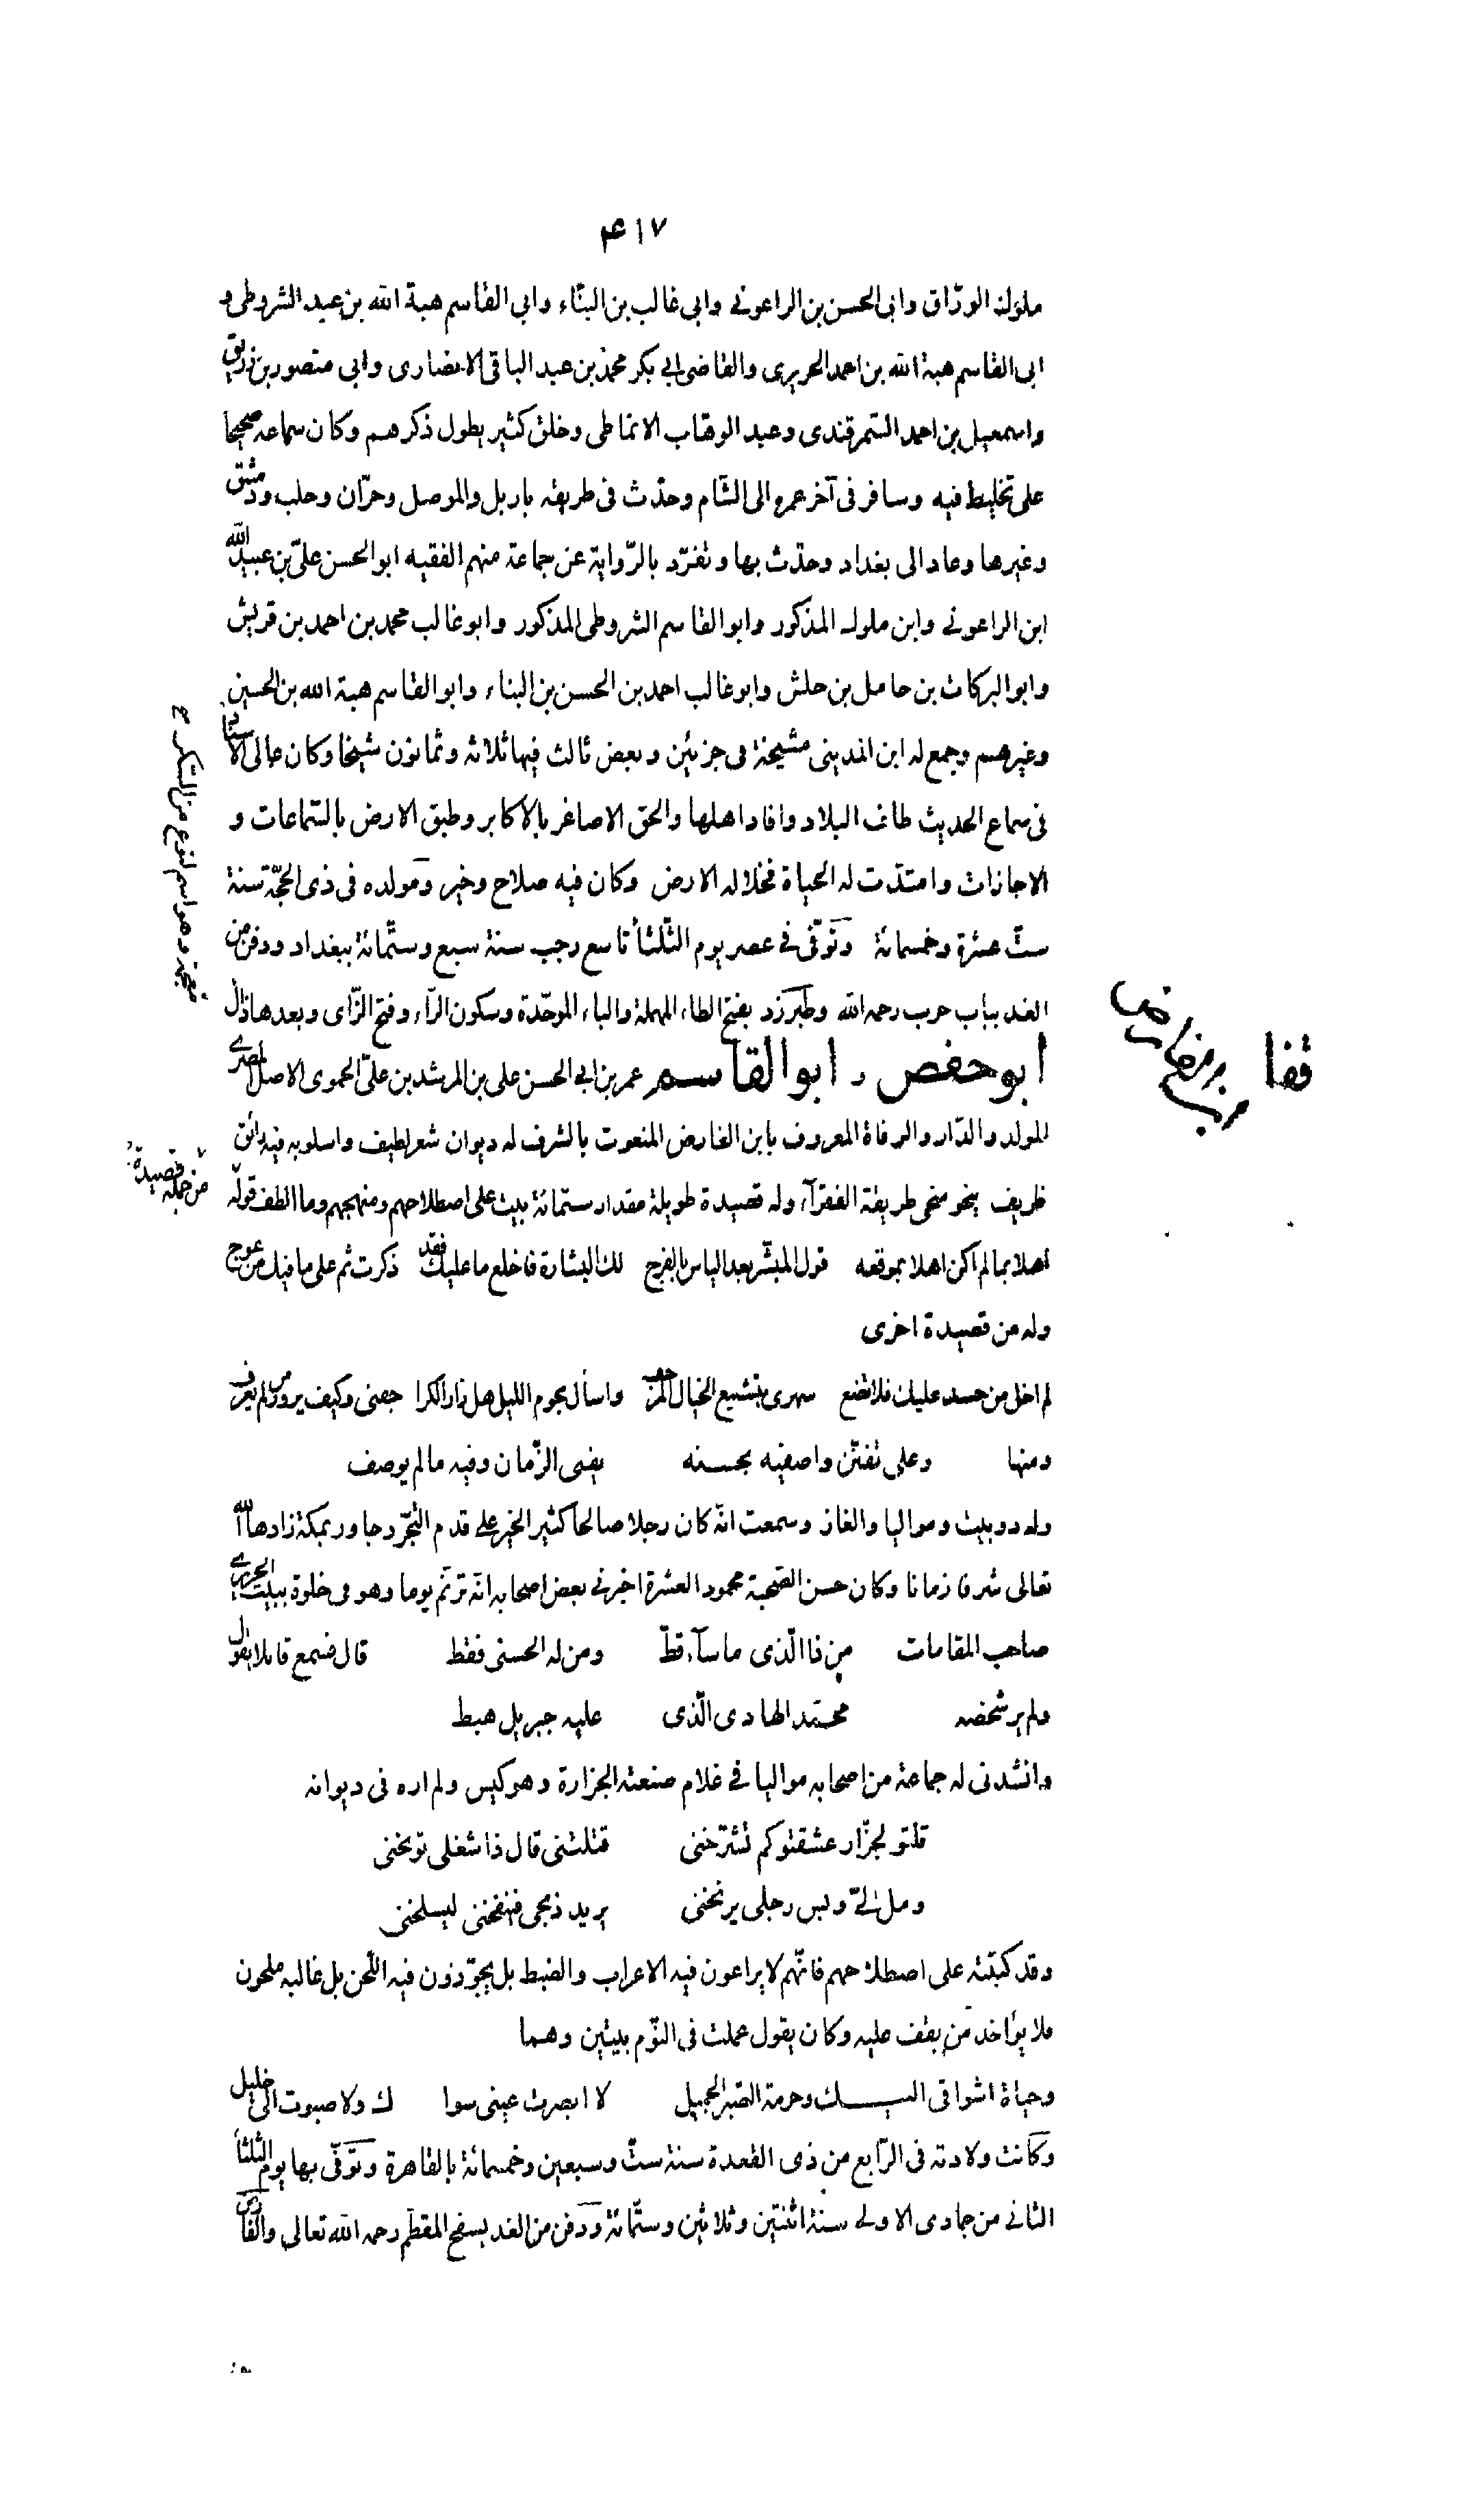 ۴۱۷
ملوك الورّاق وابى الحسن بن الراعونى وابى غالب بن البنّاء وابى القاسم هبة الله بن عبد الشروطى و
ابى القاسم هبة الله بن احمد الحريرى والقاضى ابى بكر محمد بن عبد الباقى الانصارى وابى منصور بن زريق
واسمعيل بن احمد السّمرقندى وعبد الوهّاب الانماطى وخلق كثير يطول ذكرهم وكان سماعه صحيحا
على تخليط فيه وسافر فى آخر عمره الى الشّام وحدّث فى طريقه باربل والموصل وحرّان وحلب ودمشق
وغيرها وعاد الى بغداد وحدّث بها وتفرّد بالرّواية عن جماعة منهم الفقيه ابو الحسن علىّ بن عبيد الله
ابن الراعونى وابن ملوك المذكور وابو القاسم الشروطى المذكور وابو غالب محمد بن احمد بن قريش
وابو البركات بن حامل بن حلش وابو غالب احمد بن الحسن بن البناء وابو القاسم هبة الله بن الحسين
وغيرهم وجمع له ابن المدينى مشيخة فى جزئين وبعض ثالث فيها ثلاثه وثمانون شيخا وكان عالى الاسناد
فى سماع الحديث طاف البلاد وافاد اهلها والحق الاصاغر بالاكابر وطبق الارض بالسّماعات و
الاجازات وامتدّت له الحياة فخلا له الارض وكان فيه صلاح وخير ومولده فى ذى الحجّة سنة
ستّ عشرة وخمسمائة وتوّفى فى عصر يوم الثّلثا تاسع رجب سنة سبع وستّمائة ببغداد ودفن من
الغد بباب حرب رحمه الله وطبرزد بفتح الطاء المهملة والباء الموحّدة وسكون الرّاء وفتح الزّاى وبعدها ذال
معجمة وهو اسم لنوع من السّكر ح
ابو حفص و ابو القاسم عمر بن ابى الحسن على بن المرشد بن علىّ الحموى الاصل المصرى
المولد والدّار والوفاة المعروف بابن الفارض المنعوت بالشرف له ديوان شعر لطيف واسلوبه فيه رائق
ظريف ينحو منحى طريقة الفقرآء وله قصيدة طويلة مقدار ستمّائة بيت على اصطلاحهم ومنهجهم وما الطف قوله
من جملة قصيدة
اهلا بما لم اكن اهلا بموقعه قول المبشّر بعد الياس بالفرج لك البشارة فاخلع ما عليك فقد ذكرت ثم على ما فيك من عوج
وله من قصيدة اخرى
لم اخل من حسد عليك فلا تضع سهرى بتشييع الخيال المرجف واسأل نجوم الليل هل زار الكرا جفنى وكيف يزور من لم يعرف
ومنها وعلى تفنّن واصفيه بحسنه يفنى الزّمان وفيه ما لم يوصف
وله دوبيت ومواليا والغاز وسمعت انّه كان رجلا صالحا كثير الخير على قدم التّجرّد جاور بمكة زادها الله
تعالى شرفا زمانا وكان حسن الصّحبة محمود العشرة اخبرنى بعض اصحابه انّه ترنّم يوما وهو فى خلوة ببيت الحريرى
صاحب المقامات من ذا الّذى ما سآء قطّ ومن له الحسنى فقط قال فسمع قائلا يقول
ولم ير شخصه محمّد الهادى الّذى عليه جبريل هبط
وانشدنى له جماعة من اصحابه مواليا فى غلام صنعته الجزارة وهو كيس ولم اره فى ديوانه
قلتو لجزّار عشقتو كم تشرّحنى قتلتنى قال ذا شغلى توبخنى
ومل الىّ وبس رجلى يربخنى يريد ذبحى فينفخنى ليسلخنى
وقد كتبته على اصطلاحهم فانّهم لا يراعون فيه الاعراب والضبط بل يجوّزون فيه اللّحن بل غالبه ملحون
فلا يؤاخذ من يقف عليه وكان يقول عملت فى النّوم بيتين وهما
وحياة اشواقى اليـــك وحرمة الصّبر الجميل لا ابصرت عينى سوا ك ولا صبوت الى خليل
وكانت ولادته فى الرّابع من ذى القعدة سنة ستّ وسبعين وخمسمائة بالقاهرة وتوّفى بها يوم الثّلثا
الثانى من جمادى الاولى سنة اثنتين وثلاثين وستّمائة ودفن من الغد بسفح المقطّم رحمه الله تعالى والفارض